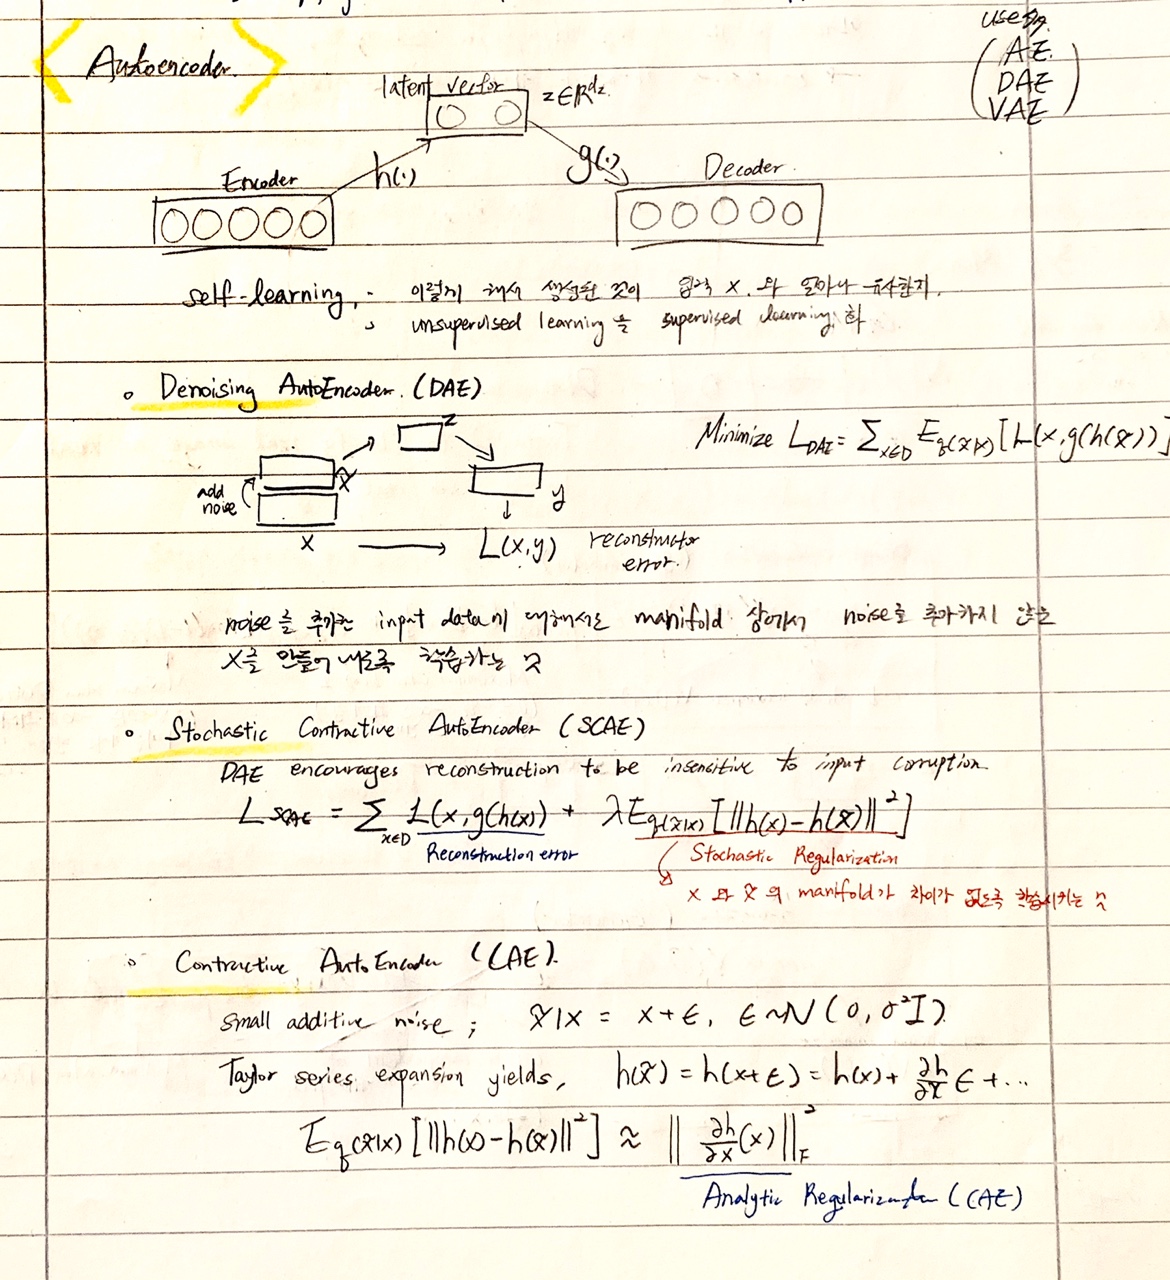 Autoencoder.
(AE.
DAE
VAE)
latent vector z∈ℝ^dz.
h(·) g(·)
Encoder Decoder.
self-learning, - 이렇게 해서 생성된 것이 입력 x 와 얼마나 유사한지.
unsupervised learning을 supervised learning 화
◦ Denoising AutoEncoder. (DAE)
Minimize L_DAE = Σ_x∈D E_q(x̃|x) [L(x, g(h(x̃))]
z
add noise
x̃
y
x → L(x,y) reconstructor error.
noise를 추가한 input data에 대해서도 manifold 상에서 noise를 추가하지 않은
x를 만들어 내도록 학습하는 것
◦ Stochastic Contractive AutoEncoder (SCAE)
DAE encourages reconstruction to be insensitive to input corruption
L_SCAE = Σ_x∈D L(x, g(h(x)) + λE_q(x̃|x) [||h(x) - h(x̃)||²]
Reconstruction error Stochastic Regularization
x 와 x̃ 의 manifold가 차이가 없도록 학습시키는 것
◦ Contractive AutoEncoder (CAE).
small additive noise ; x̃|x = x+ϵ, ϵ ~ N(0, σ²I)
Taylor series expansion yields, h(x̃) = h(x+ϵ) = h(x) + ∂h/∂x ϵ + ...
E_q(x̃|x) [||h(x) - h(x̃)||²] ≈ || ∂h/∂x (x) ||²_F
Analytic Regularization (CAE)